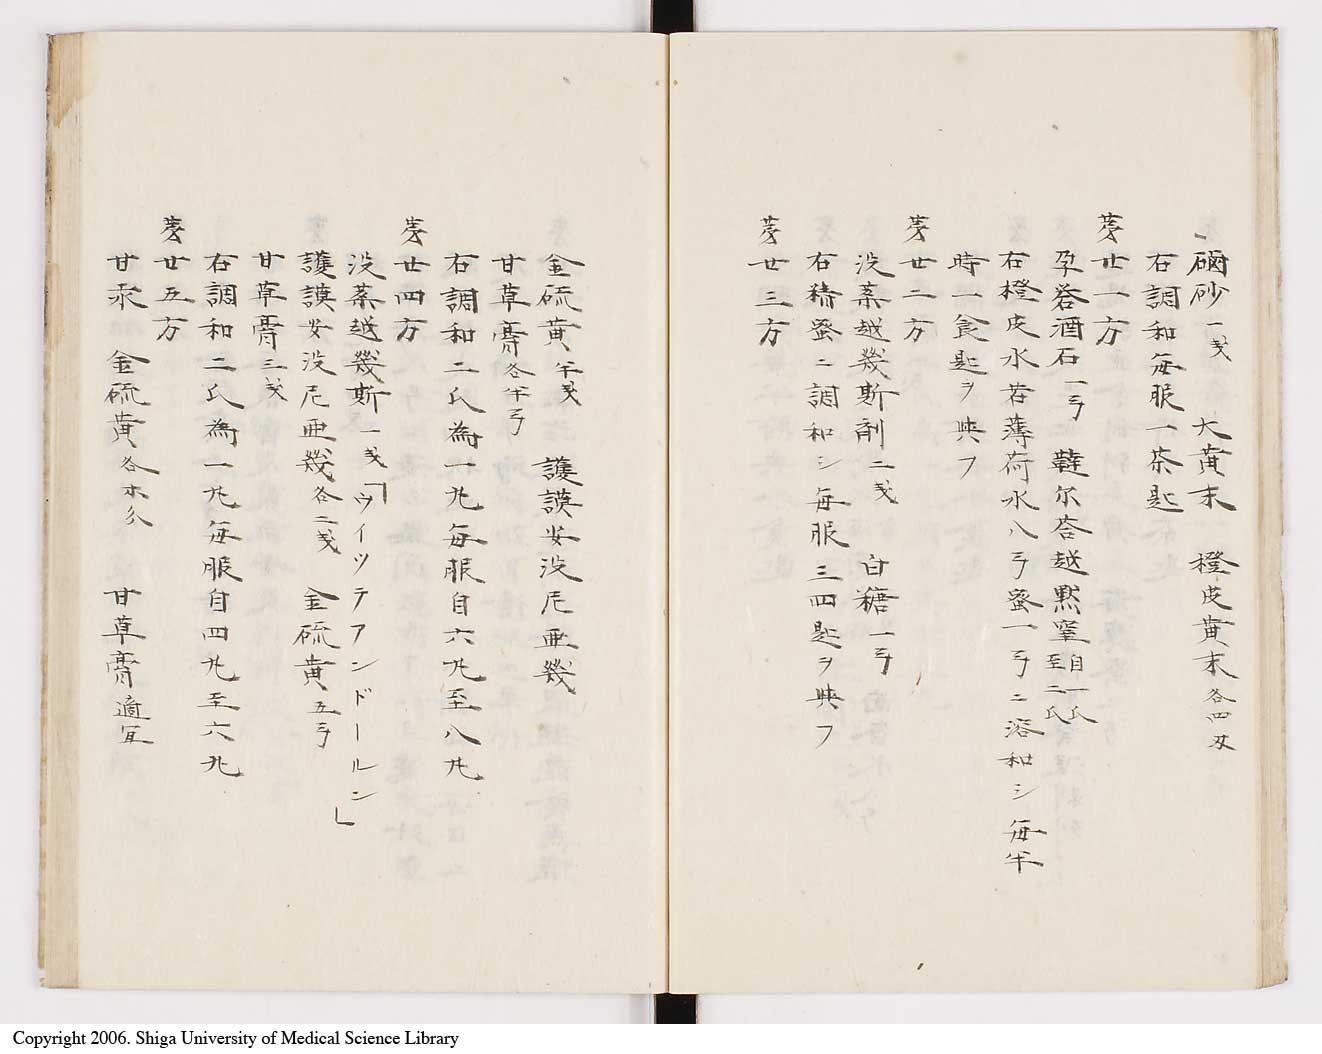 硇砂一戔 大黄末 橙皮黄末各四
右調和每服一茶匙
葊廿一方
孕礬酒石一弓 鞾尔荅越黙窒自一氏至二氏
右橙皮水若薄荷水八弓蜜一弓ニ溶和シ每半
時一食匙ヲ與フ
葊廿二方
没薬越幾斯剤二戔 白糖一弓
右稀蜜ニ調和シ每服三四匙ヲ與フ
葊廿三方
金硫黄半戔 護謨安没尼亜幾
甘草膏各半弓
右調和二氏為一丸每服自六丸至八丸
葊廿四方
没薬越幾斯一戔「ウイツテアンドールン」
護謨安没尼亜幾各二戔 金硫黄五弓
甘草膏三戔
右調和二氏為一丸每服自四丸至六丸
葊廿五方
甘汞 金硫黄各 甘草膏適宜
Copyright 2006. Shiga University of Medical Science Library